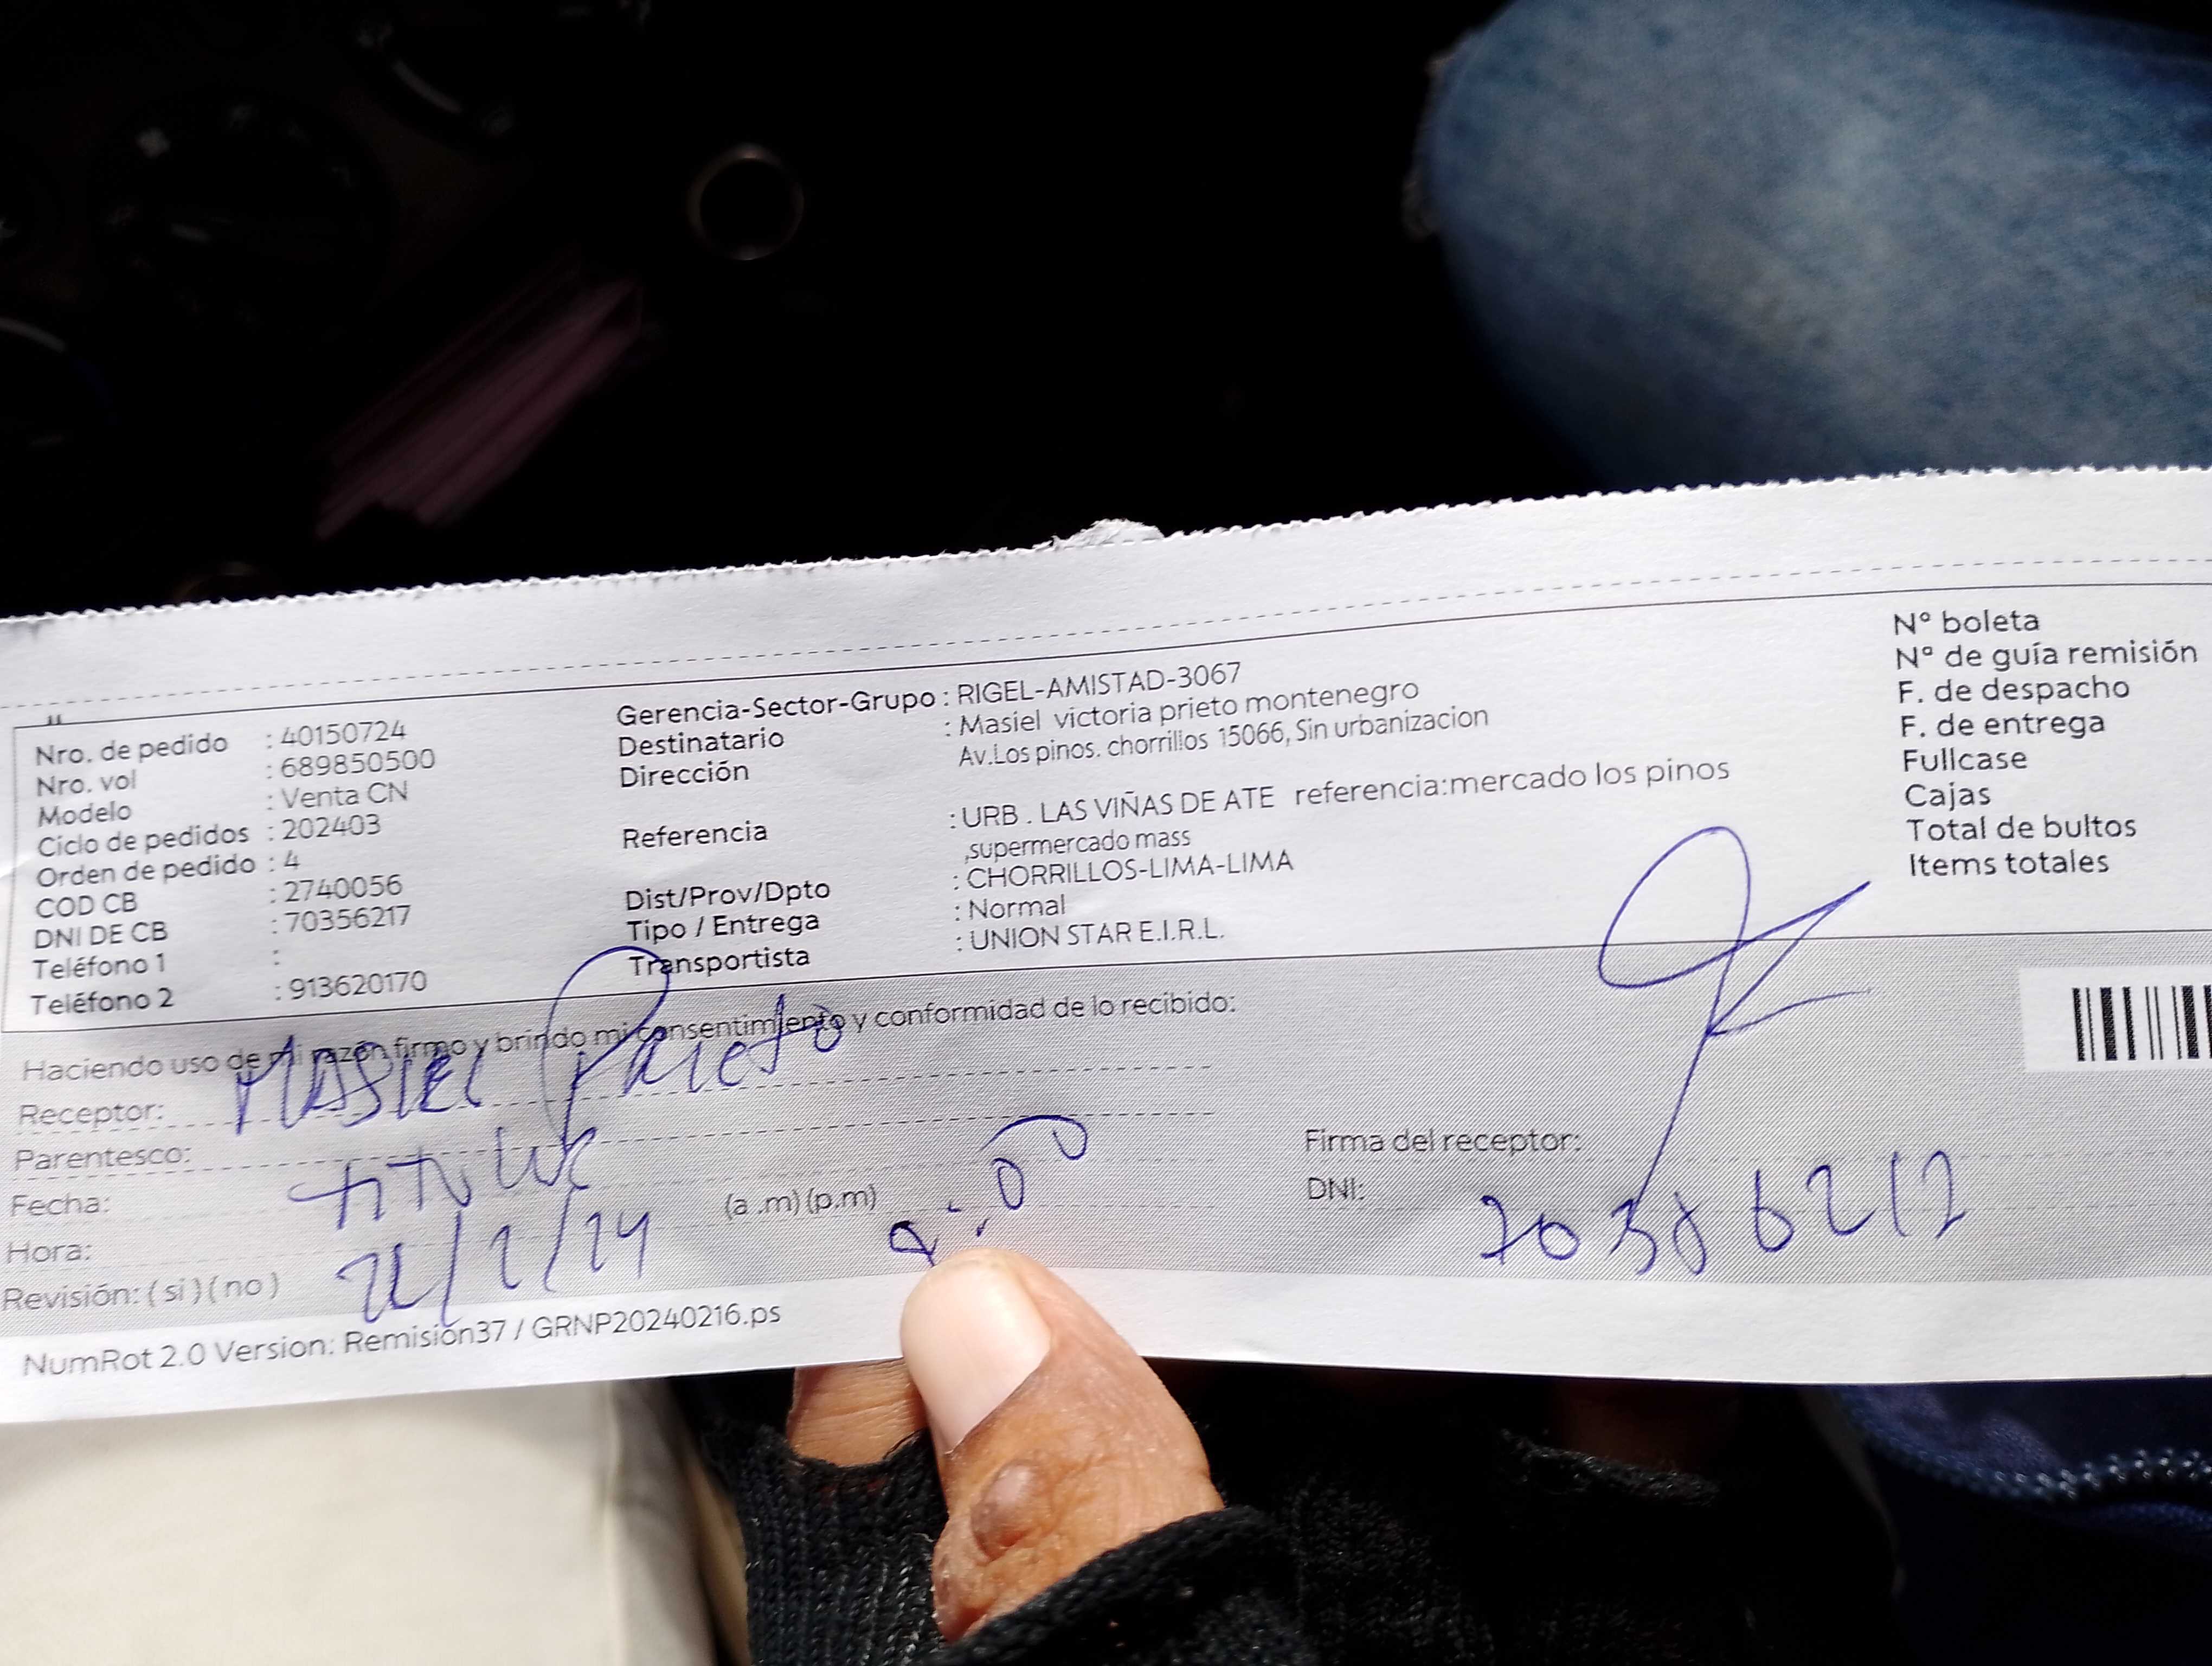 Nro. de pedido : 40150724
Nro. vol : 689850500
Modelo : Venta CN
Ciclo de pedidos : 202403
Orden de pedido : 4
COD CB : 2740056
DNI DE CB : 70356217
Teléfono 1 :
Teléfono 2 : 913620170
Gerencia-Sector-Grupo : RIGEL-AMISTAD-3067
Destinatario : Masiel victoria prieto montenegro
Dirección Av.Los pinos. chorrillos 15066, Sin urbanizacion
Referencia : URB . LAS VIÑAS DE ATE referencia:mercado los pinos
,supermercado mass
Dist/Prov/Dpto : CHORRILLOS-LIMA-LIMA
Tipo / Entrega : Normal
Transportista : UNION STAR E.I.R.L.
N° boleta
N° de guía remisión
F. de despacho
F. de entrega
Fullcase
Cajas
Total de bultos
Items totales
Haciendo uso de mi razón firmo y brindo mi consentimiento y conformidad de lo recibido:
Receptor: MASIEL Prieto
Parentesco:
Fecha:
Hora: (a .m) (p.m)
Revisión: ( si ) ( no )
Firma del receptor:
DNI:
NumRot 2.0 Version: Remision37 / GRNP20240216.ps